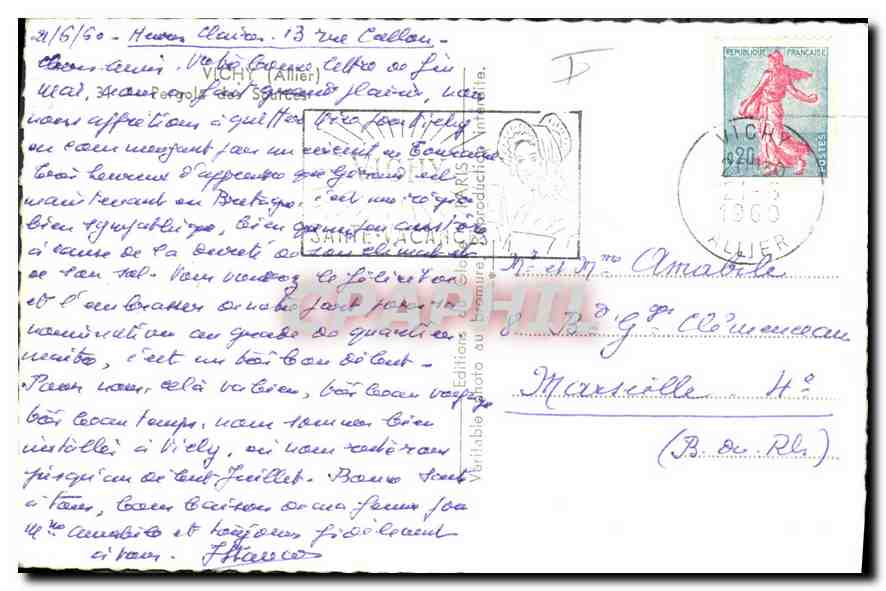 21/6/60 - 13 rue Callou -
chers amis. Votre bonne lettre de fin
VICHY (Allier)
mai, nous a fait grand plaisir, nous
34 Pergola des Sources
nous apprêtions à quitter pour Vichy
en commençant par un circuit en Touraine
Très heureux d'apprendre que est
maintenant en Bretagne, c'est une région
bien sympathique, bien que
à cause de la dureté de son climat et
de son sol. Vous voudrez le féliciter
et l'embrasser de notre part pour sa
nomination au grade de quartier
maître, c'est un très bon début.
Pour nous, celà va bien, très beau voyage
très beau temps, nous sommes bien
installés à Vichy, où nous resterons
jusqu'au début Juillet. Bonne santé
à tous, bons baisers de ma femme pour
Mme Amabile et toujours fidèlement
à vous.
Editions
PARIS
Véritable photo au bromure Reproduction interdite.
VICHY
SANTÉ VACANCES
CPAPHIL
REPUBLIQUE FRANÇAISE
0,20
POSTES
VICHY
21-6
1960
ALLIER
Mr et Mme Amabile
8 Bd Ges Clémenceau
Marseille 4e
(B. du Rh.)